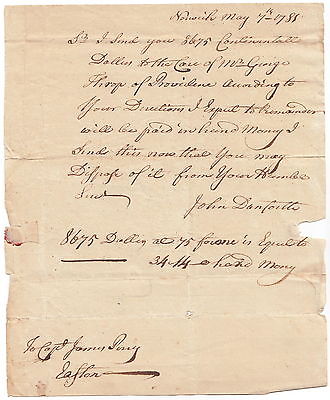 Norwich May 7th 1781
Sr I Send you 8675 Continentall
Dollers to the Care of Mr George
Throp of Providene
Your Directions I Expect the Remander
will be paid in hard Money I
Send this now that You may
Disspose of it from Your Humble
Serv
John Danforth
8675 Dollers at 75 for one is Equal to
34-14 hard Mony
To Capt James Perry
Easton